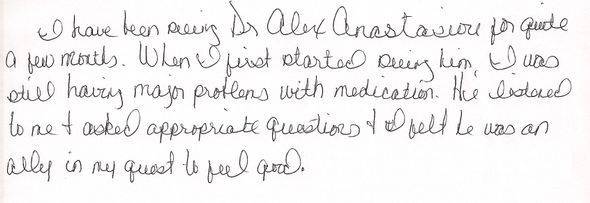 I have been seeing Dr Alex Anastasiou for quite
a few months. When I first started seeing him, I was
still having major problems with medication. He listened
to me + asked appropriate questions + I felt he was an
ally in my quest to feel good.